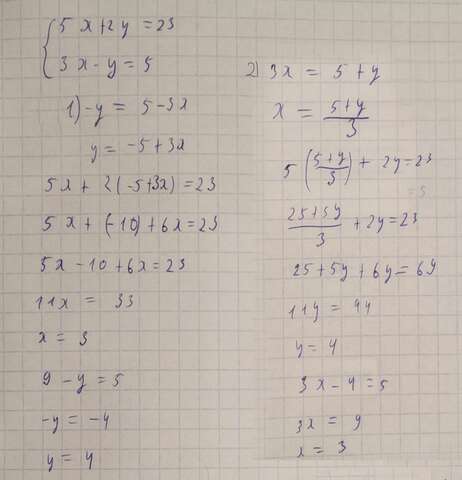 5x+2y=23
3x-y=5
1) -y = 5-3x
y = -5+3x
5x+2(-5+3x)=23
5x+(-10)+6x=23
5x-10+6x=23
11x = 33
x = 3
9-y=5
-y = -4
y = 4
2) 3x = 5+y
x = (5+y)/3
5((5+y)/3) + 2y=23
(25+5y)/3 + 2y=23
25+5y+6y=69
11y = 44
y = 4
3x-4=5
3x = 9
x = 3